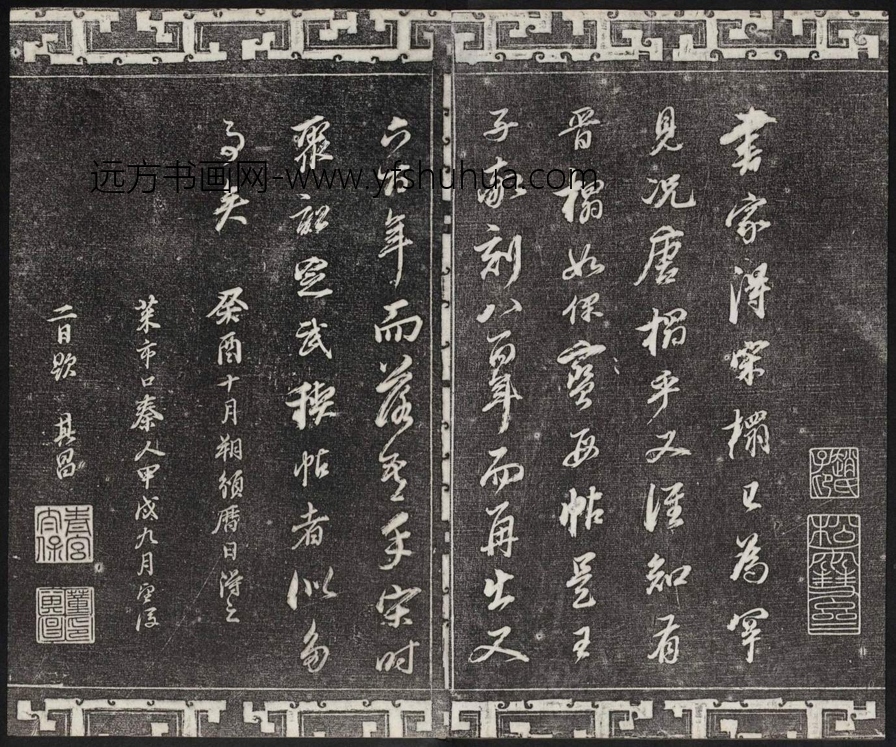 书家得宋榻已为罕
见况唐榻乎又谁知有
晋榻如保窑母帖是王
子敬刻八百年而再出又
六百年而落吾手宋时
聚讼定武禊帖者似多
事矣 癸酉十月朔颁历日得之
菜市口秦人甲戌九月望后
二日题 其昌
远方书画网-www.yfshuhua.com